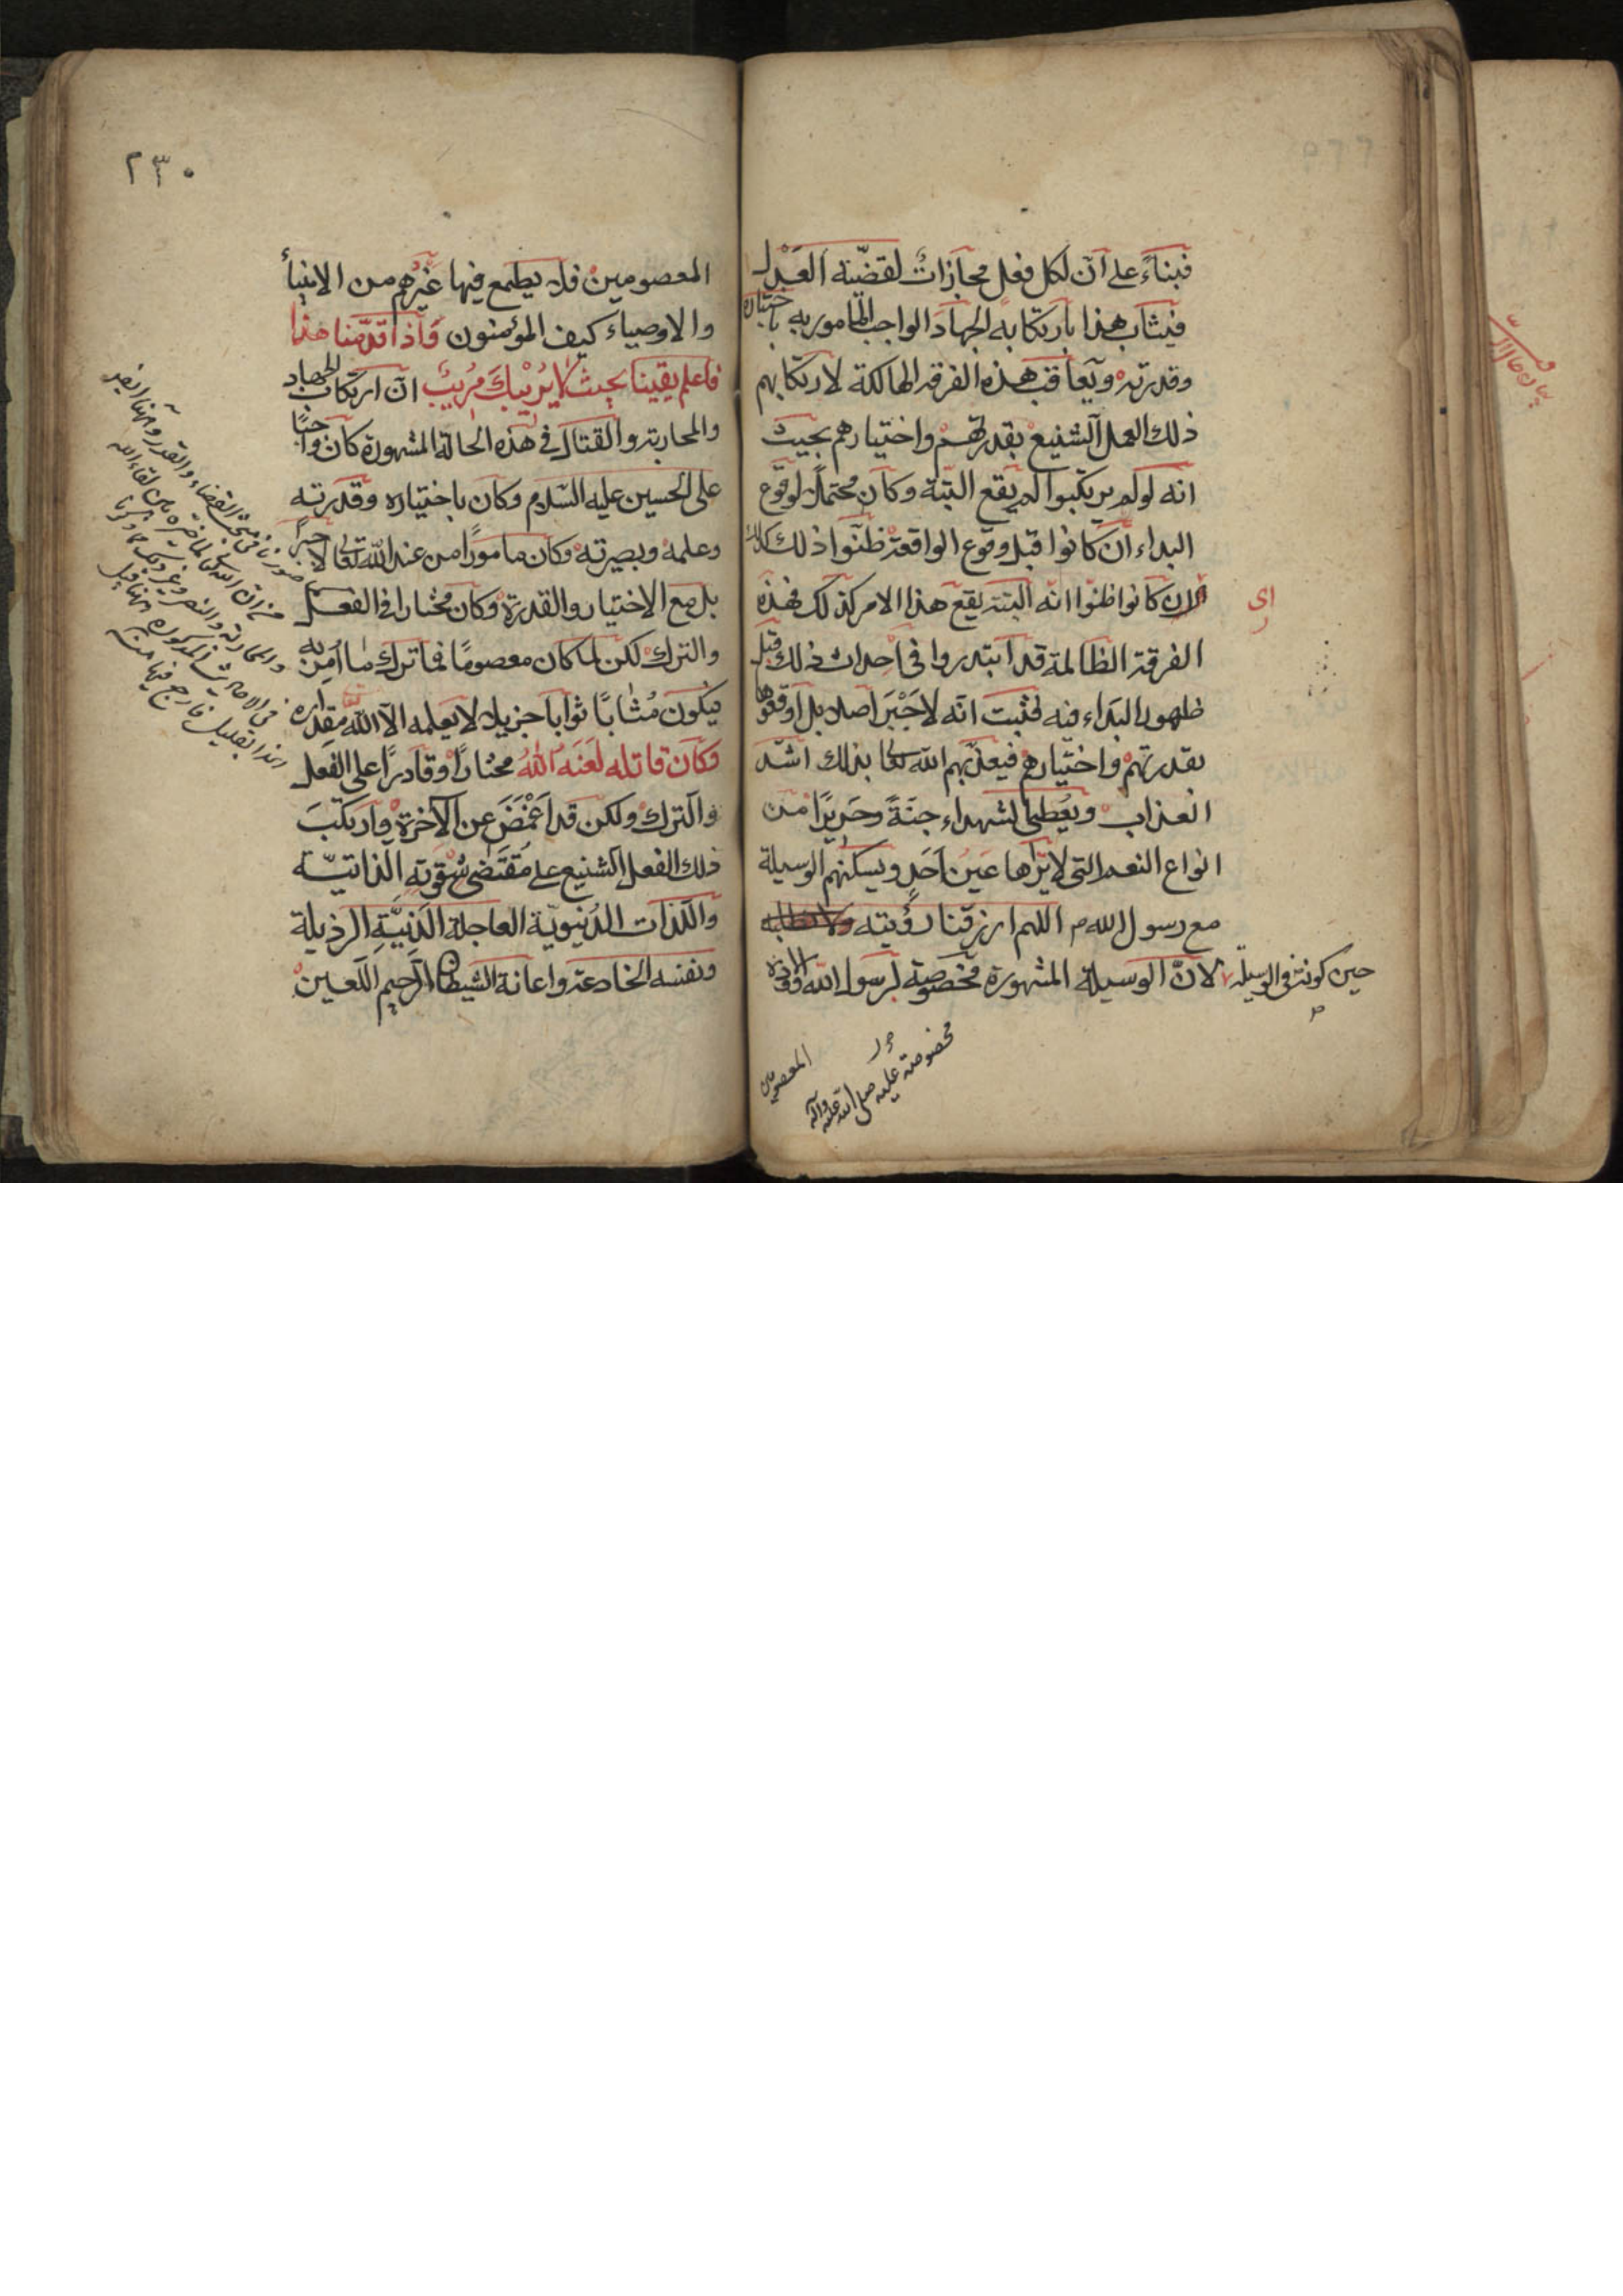 فبناءً على ان لكل فعل مجازاتٌ لقضيّة العَدْل
فيثاب هذا بارتكابه الجهاد الواجب المامور به باختياره
وقدرته ويعاقب هذه الفرقه الهالكة لارتكابهم
ذلك العمل الشنيع بقدرتهم واختيارهم بحيث
انه لو لم يرتكبوا لم يقع البتة وكان محتملا لوقوع
البداء ان كانوا قبل وقوع الواقعة ظنوا ذلك كذلك
ان كانوا ظنوا انه البتة يقع هذا الامر كذلك فهذه
اى
الفرقة الظالمة قد ابتدروا فى احداث ذلك قبل
ظهور البداء فيه فثبت انه لا جَبْرَ اصلا بل اوقعوها
بقدرتهم واختيارهم فيعذّبهم الله تعالى بذلك اشد
العذاب ويُعطى الشهداء جنةً وحريرًا من
انواع النعم التى لا يَرٰها عَينُ احَدٍ ويسكنهم الوسيلة
مع رسول الله ص اللهم ارزقنا رؤيته
حين كونه فى الوسيلة لان الوسيلة المشهورة مخصوصة لرسول الله واولاده
مخصوصة عليه صلى الله عليه وآله
المعصومين
٢٣٠
المعصومين فلا يطمع فيها غيرُهم من الانبياء
والاوصياء كيف المؤمنون وَاذا قدّمنا هذا
فاعلم يقينا بحيث لا يُرِيْبُكَ مُريبٌ ان ارتكاب الجهاد
والمحاربة والقتال فى هذه الحالة المشهورة كان واجبًا
على الحسين عليه السلام وكان باختياره وقدرته
وعلمه وبصيرته وكان مامورًا من عند الله تعالى لا جبرًا
بل مع الاختيار والقدرة وكان مختارا فى الفعل
والترك لكن لما كان معصومًا فما ترك ما اُمِرَ به
فيكون مُثابًا ثوابا جزيلا لا يعلمه الا اللّٰه مقداره
وكان قاتله لَعَنَهُ اللّٰهُ مختارًا وقادرًا على الفعل
والترك ولكن قد اَغْمَضَ عن الآخرة وارتكبَ
ذلك الفعل الشنيع على مُقتَضٰى شِقْوَتِهِ الذاتيّة
واللذات الدُنيويّة العاجلة الدَنِيَّةِ الرذيلة
ونفسه الخادعة واعانة الشيطان الرجيم اللعين